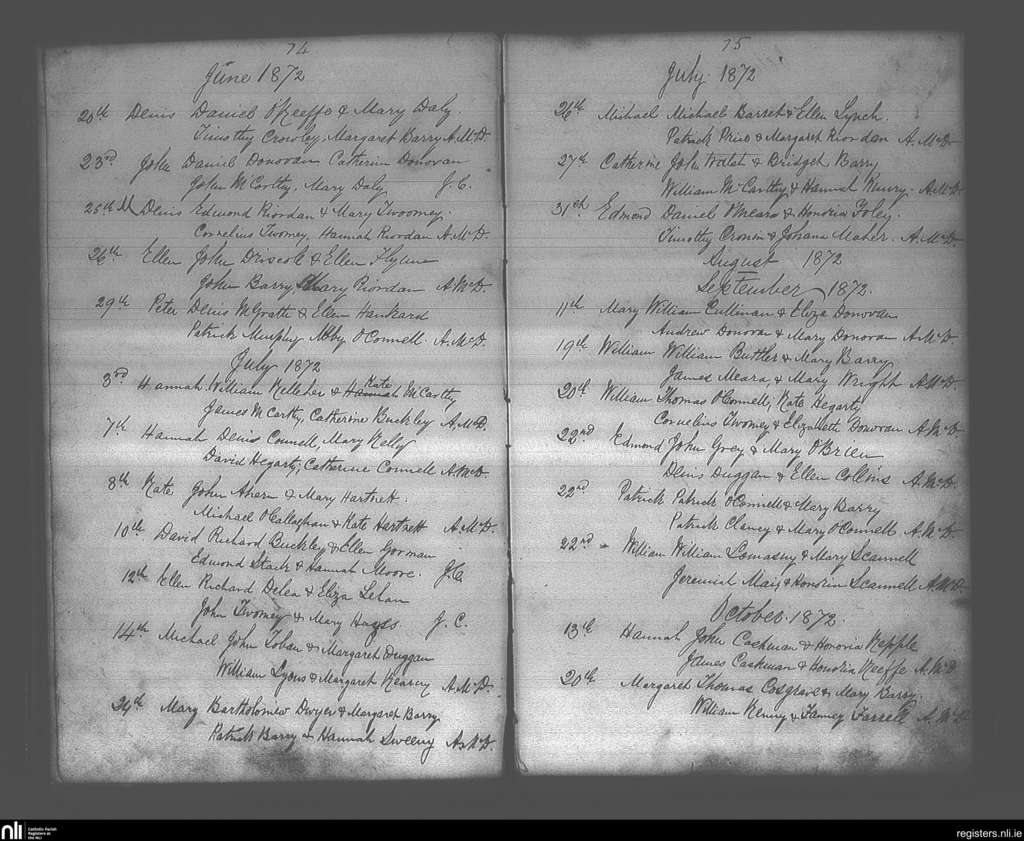 74
June 1872
20th Denis Daniel O'Keeffe & Mary Daly
Timothy Crowley, Margaret Barry A.McD.
23rd John Daniel Donovan Catherine Donovan
John McCarthy, Mary Daly J.C.
25th Denis Edmond Riordan & Mary Twoomey.
Cornelius Twomey, Hannah Riordan A.McD.
26th Ellen John Driscole & Ellen Flynne
John Barry, Mary Riordan A.McD.
29th Peter Denis McGrath & Ellen Hankard
Patrick Murphy Abby O'Connell. A.McD.
July 1872
3rd Hannah William Kelleher & Hannah Kate McCarthy
James McCarthy, Catherine Buckley A.McD.
7th Hannah Denis Connell, Mary Kelly
David Hegarty, Catherine Connell A.McD.
8th Kate John Ahern & Mary Hartnett.
Michael O'Callaghan & Kate Hartnett A.McD.
10th David Richard Buckley & Ellen Gorman
Edmond Stack & Hannah Moore. J.C.
12th Ellen Richard Delea & Eliza Lehan
John Twomey & Mary Hayes J.C.
14th Michael John Toban & Margaret Duggan
William Lyons & Margaret Kearny A.McD.
24th Mary Bartholomew Dwyer & Margaret Barry.
Patrick Barry & Hannah Sweeny A.McD.
75
July 1872
26th Michael Michael Barret & Ellen Lynch.
Patrick Price & Margaret Riordan A.McD.
27th Catherine John & Bridget Barry
William McCarthy & Hannah Kenry. A.McD.
31st Edmond Daniel O'Meara & Honoria Foley.
Timothy Cronin & Johana Maher. A.McD.
August 1872
September 1872.
11th Mary William Cullinan & Eliza Donovan
Andrew Donovan & Mary Donovan A.McD.
19th William William Buttler & Mary Barry
James Meara, & Mary Wright A.McD.
20th William Thomas O'Connell, Kate Hegarty
Cornelius Twomey & Elizabeth Donovan A.McD.
22nd Edmond John Grey & Mary O'Brien
Denis Duggan & Ellen Collins A.McD.
22nd Patrick Patrick O'Connell & Mary Barry
Patrick Clancy & Mary O'Connell A.McD.
22nd William William Lomasny & Mary Scannell
Jeremiah & Honoria Scannell A.McD.
October 1872.
13th Hannah John Cashman & Honoria Kepple
James Cashman & Honoria Keeffe A.McD.
20th Margaret Thomas Cosgrave & Mary Barry.
William Kenry & Fanney Farrell A.McD.
nli Catholic Parish
Registers at
the NLI
registers.nli.ie